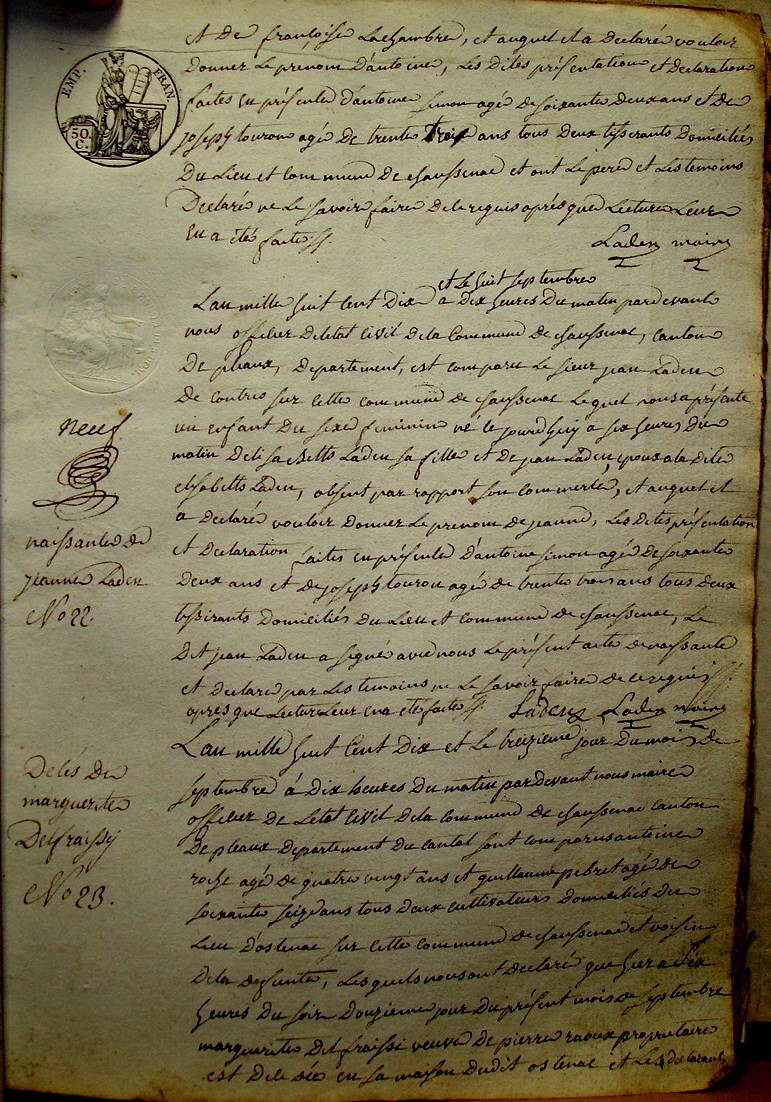 EMP. FRAN.
50. C.
et de françoise Lachambre, et auquel il a declaré vouloir
donner Le prenom d'antoine, Les dites présentation et declaration
faites en présente d'antoine simon agé de soixante deux ans et de
joseph touron agé de trente trois ans tous deux tisserants domiciliés
du Lieu et commune de chaussenac et ont Le pere et Les temoins
declaré ne Le savoir faire de ce requis après que Lecture Leur
en a été faite ff.
Laden maire
et Le huit septembre
L'an mille huit cent dix a dix heures du matin pardevant
nous officier de letat civil de la commune de chaussenac, canton
de pleaux, departement, est comparu Le sieur jean Laden
de contres sur cette commune de chaussenac Lequel nous a présenté
un enfant du sexe feminin né le jourdhuy a six heures du
matin delisabette Laden sa fille et de jean Laden, epoux a la dite
elsabette Laden, absent par rapport son commerce, et auquel il
a declaré vouloir donner Le prenom de jeanne, Les dites présentation
et declaration faites en présente d'antoine simon agé de soixante
deux ans et de joseph touron agé de trente trois ans tous deux
tissirants domiciliés du Lieu et commune de chaussenac, Le
dit jean Laden a signé avec nous Le présent acte de naissante
et declaré par Les temoins ne Le savoir faire de ce requis ff.
apres que Lecture Leur en a été faite ff. Laden Laden maire
neuf
naissante de
jeanne Laden
No 22.
L'an mille huit cent dix et Le treizieme jour du mois de
septembre á dix heures du matin par devant nous maire
officier de Letat civil de la commune de chaussenac canton
de pleaux departement du cantal sont comparus antoine
roche agé de quatre vingt ans et guillaume pebret agé de
soixante seize ans tous deux cultivateurs domiciliés du
Lieu d'ostenac sur cette commune de chaussenac et voisin
de la defunte, Les quels nous ont declaré que hier a six
heures du soir douzieme jour du présent mois de septembre
marguerite delfraissi veuve de pierre raoux proprietaire
est decedée en sa maison dudit ostenac et Les declarants
Decés de
marguerite
Delfraissy
No 23.